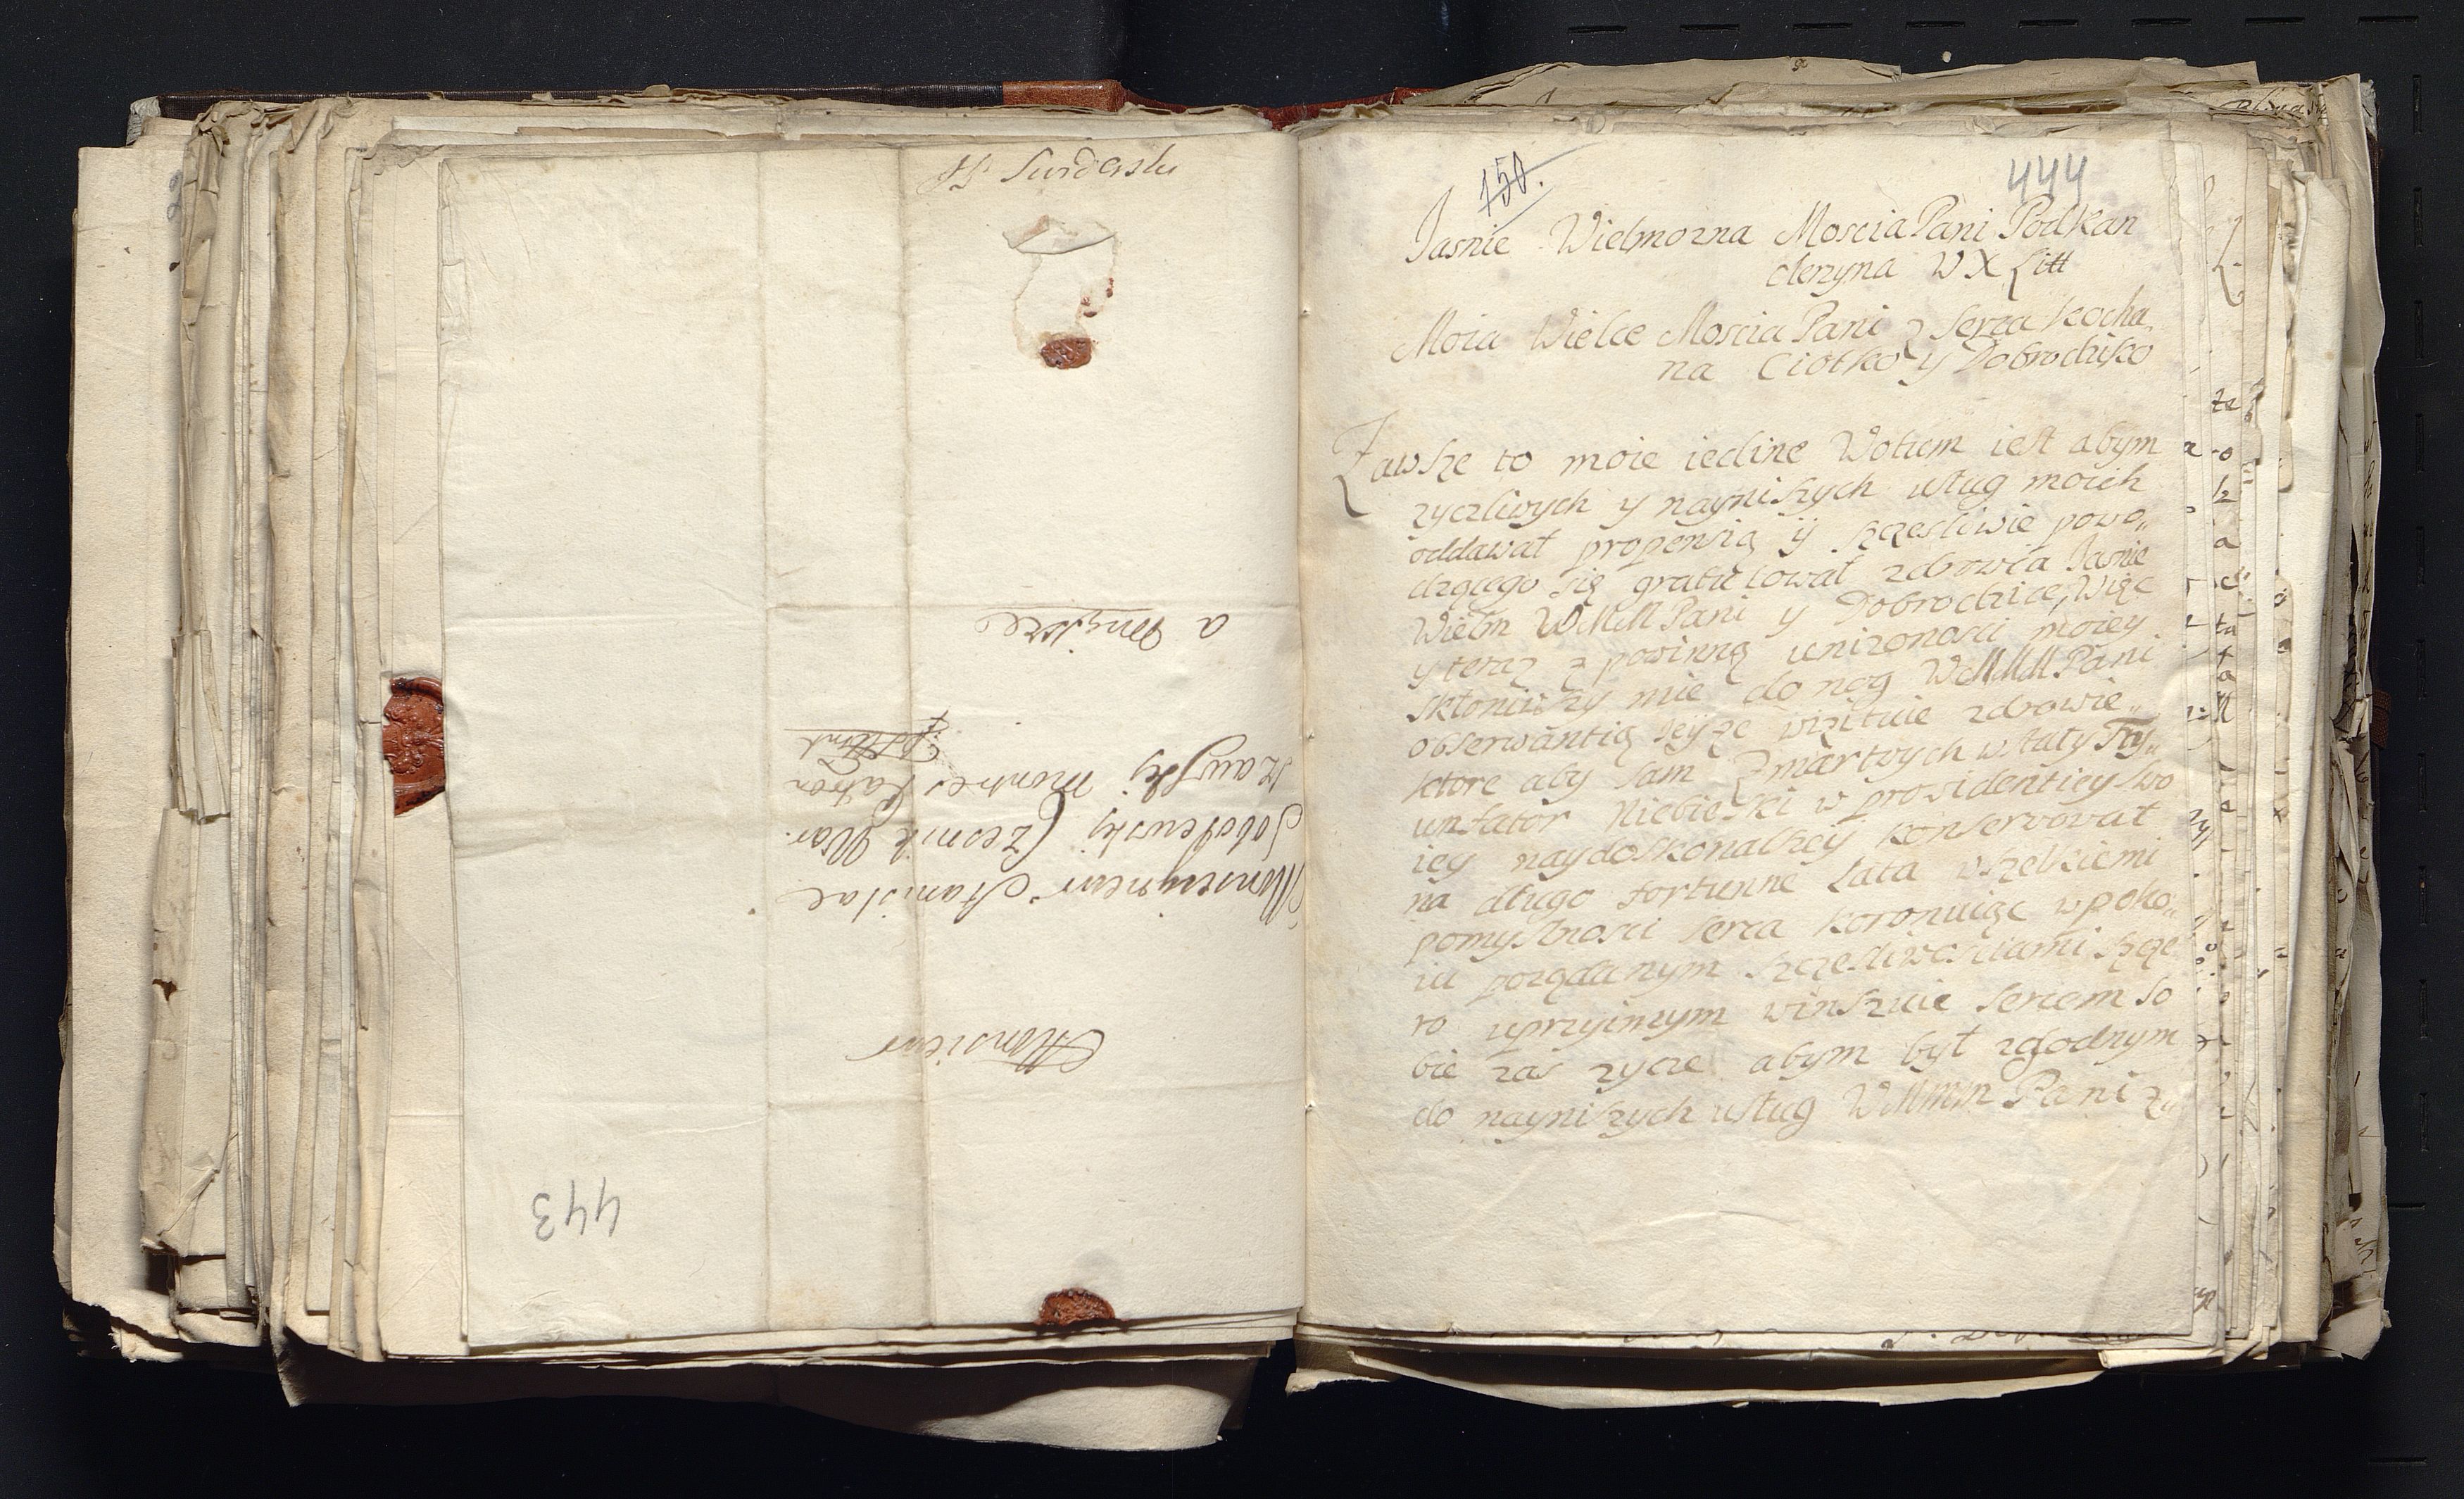 a Msjsze
Monsieur
Monseigneur Stanislae
Sobolewskj Czesnik War
szawskj
443
150.
444
Jasnie Wielmozna Moscia Pani Podkan
clerzyna W X Litt
Moia Wielce Moscia Pani z serca kocha,
na Ciotko y Dobrodziko
Zawsze to moie iedine Wotum iest abym
zyczliwych y nayniszych usług moich
oddawał propensią ÿ szczesliwie powo„
dzącego się gratulował zdrowia Jasnie
Wielm WMM Pani y Dobrodzice, Więc
y teraz z powinną unizonosci moiey
skłoniwszy mie do nog WMMM Pani
obserwantią Jeÿze wizituie zdrowie„
ktore aby sam Zmartwych wstały Try„
umfator Niebieski w prosidentiey swo
iey naydoskonalszey konserwował
na długo fortunne Lata wszelkiemi
pomyslnosci serca koronuiąc w poko„
iu poządanym szczesliwosciami szcze
ro uprzyimym winszuie sercem so
bie zas zycze abym był zgodnym
do nayniszych usług WMMM Pani z„